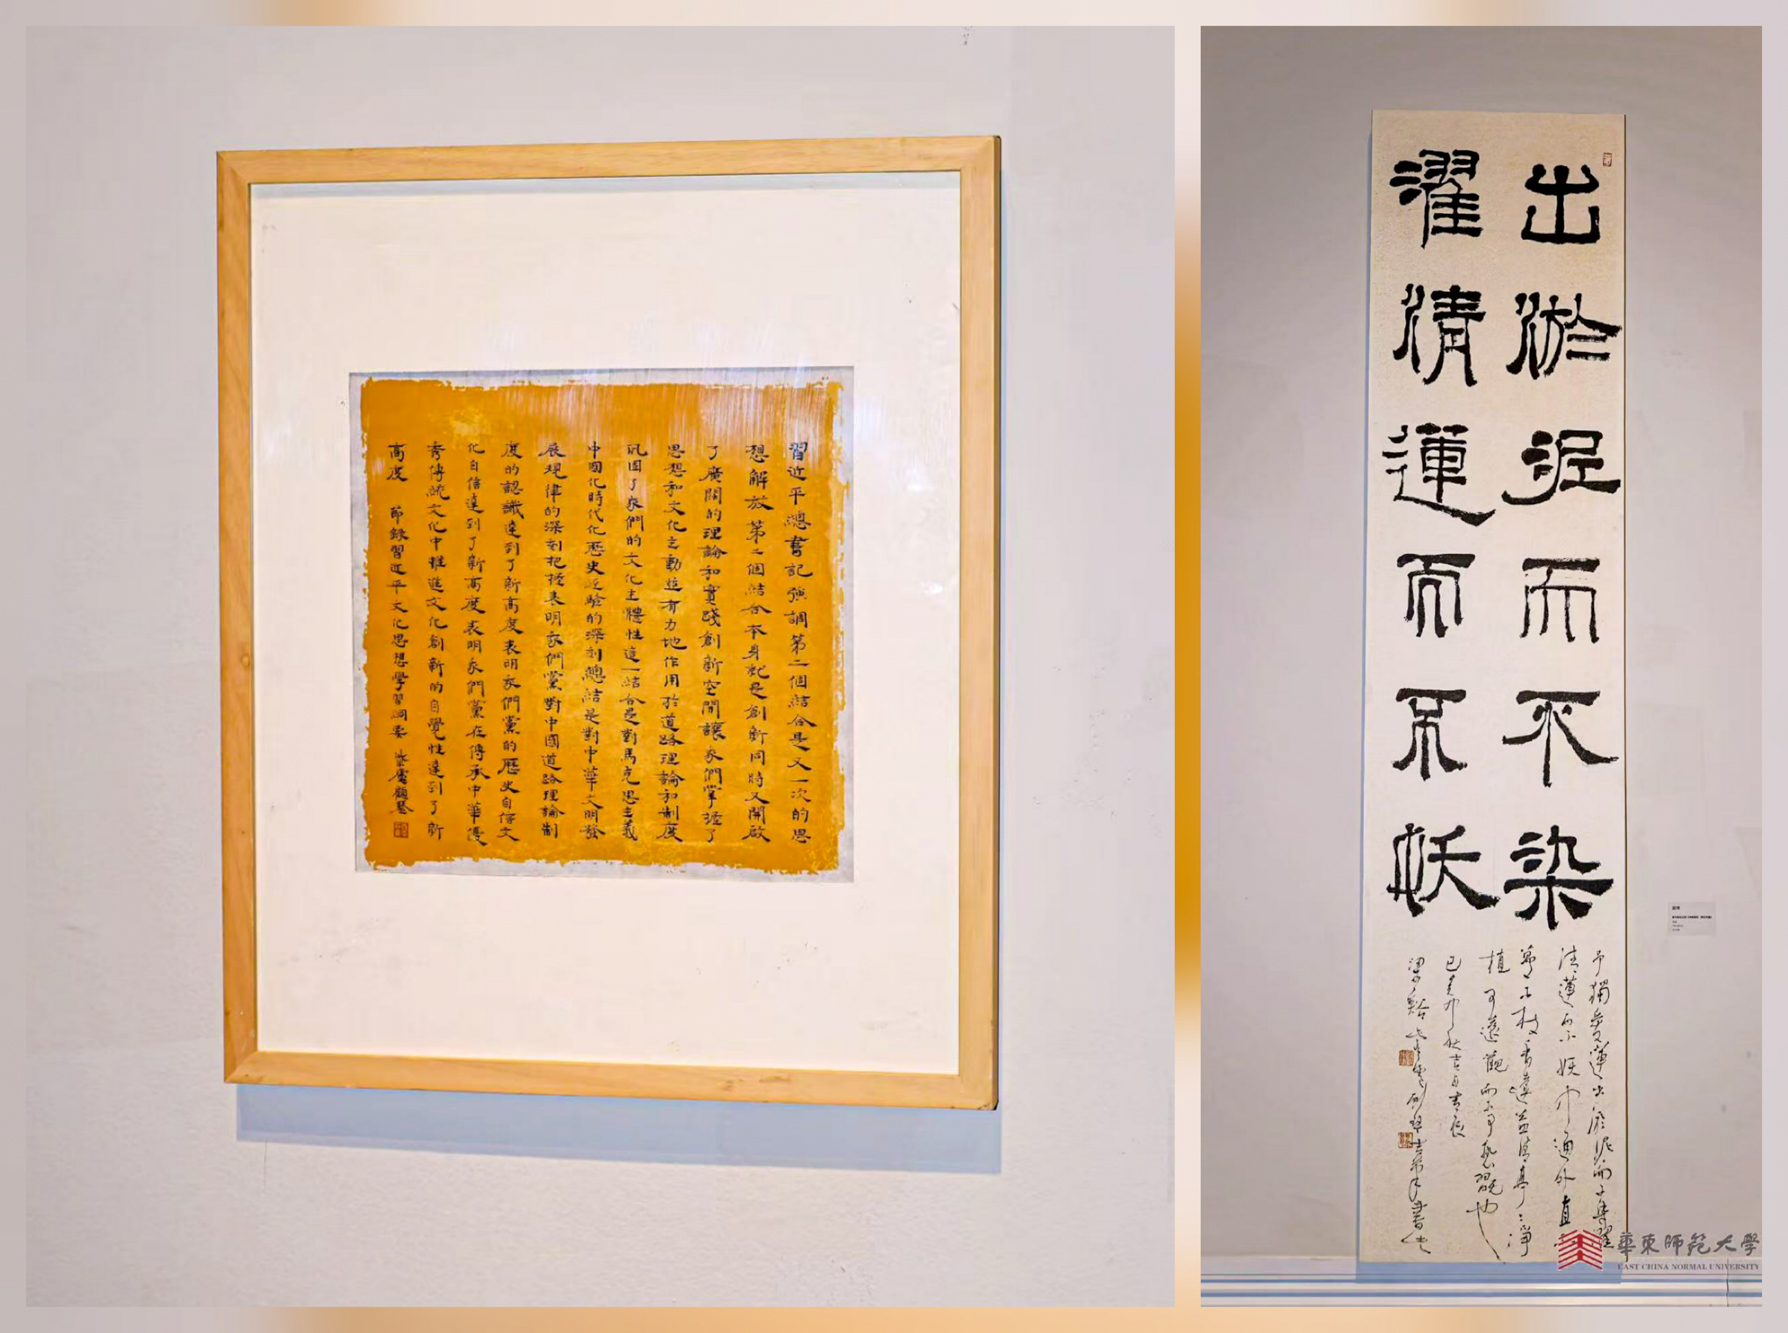 習近平總書記強調第二個結合是又一次的思
想解放第二個結合本身就是創新同時又開啟
了廣闊的理論和實踐創新空間讓我們掌握了
思想和文化主動並有力地作用於道路理論和制度
巩固了我們的文化主體性這一結合是對馬克思主義
中國化時代化歷史經驗的深刻總結是對中華文明發
展規律的深刻把握表明我們黨對中國道路理論制
度的認識達到了新高度表明我們黨的歷史自信文
化自信達到了新高度表明我們黨在傳承中華優
秀傳統文化中推進文化創新的自覺性達到了新
高度 節錄習近平文化思想學習綱要
出淤泥而不染
濯清蓮而不妖
予獨愛蓮出淤泥而不染濯
清蓮而不妖中通外直
不枝香遠益清亭亭淨
植可遠觀而不可褻翫也
華東師範大學
EAST CHINA NORMAL UNIVERSITY